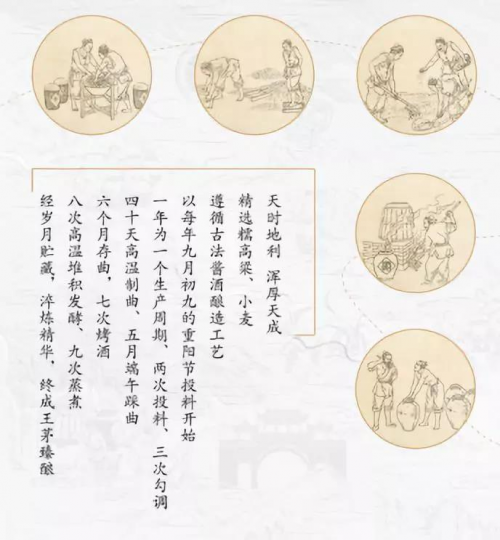 天时地利 浑厚天成
精选糯高粱、小麦
遵循古法酱酒酿造工艺
以每年九月初九的重阳节投料开始
一年为一个生产周期、两次投料、三次勾调
四十天高温制曲、五月端午踩曲
六个月存曲，七次烤酒
八次高温堆积发酵、九次蒸煮
经岁月贮藏，淬炼精华，终成王茅臻酿